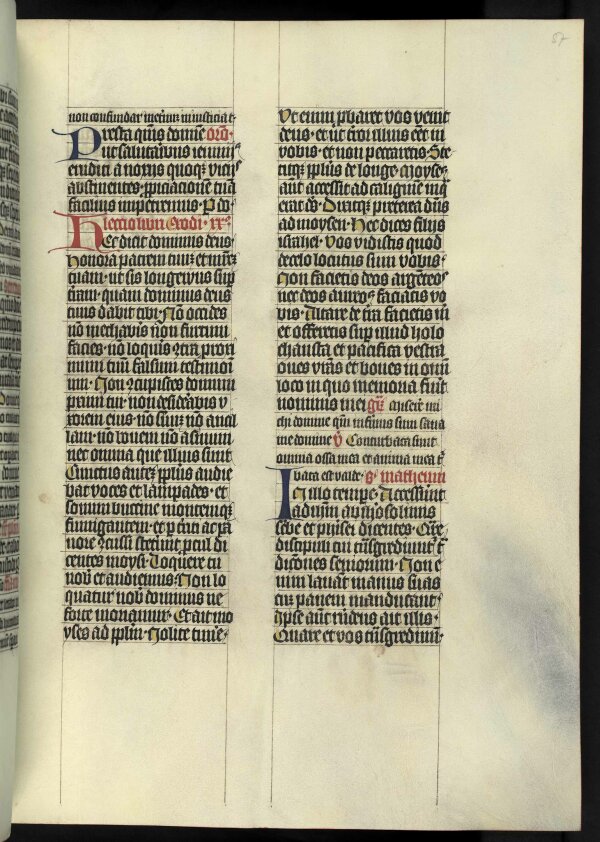 57
non confundar
Presta quis domine orō.
ut salutaribus ieiuniis
eruditi a noxiis quoque vicijs
abstinentes ppiciacione tuā
facilius impetremus. P do
Lectio libri Exodi. xx.
Hec dicit dominus deus.
honora patrem tuū et mrē
tuam. ut sis longevus sup
trām. quam dominus deus
tuus dabit tibi. Nō occides
nō mechabis nōn furtum
facies. nō loquis ꝯtra proxi
mum tuū falsum testimoni
um. Non ꝯcupisces domum
proximi tui. non desiderabis v
xorem eius. nō suū. nō ancil
lam. nō bovem nō asinum
nec omnia que illius sunt
Cunctus autem pplus audie
bat voces et lampades. et
sonitum buccine montemqꝫ
fumigantem. et ꝑtriti ac pa
vore ꝯcussi steterūt. pcul di
centes moysi. Loquere tu
nob et audiemus. Non lo
quatur nob dominus ne
forte moriamur. Et ait mo
yses ad pplm. Nolite timē.
Ut enim pbaret vos venit
deus. et ut terror illius eēt in
vobis. et non peccaretis. Ste
titqꝫ pplus de longe. Moyses
aūt accessit ad caliginē in q
erat ds. Dixitqꝫ preterea dūs
ad moysen. Hec dices filijs
israhel. Vos vidistis quod
de celo locutus sum vobis.
Non facietis deos argēteos
nec deos aureos faciatis vo
bis. Altare de trā facietis m
et offeretis sup illud holo
chausta et pacifica vestra
oues vrās et boues in omī
loco in quo memoria fuīt
nominis mei gr Miserē mi
chi domine qm infirmus sum sana
me domine v Conturbata sunt
omnia ossa mea et anima mea t
bata est valde. S. matheum
In illo tempe. Accesserūt
ad iesum
scribe et pharisei dicentes. Qāre
discipuli tui trāsgrediunt t
diciones seniorum. Non e
nim lavāt manus suas
cū panem manducant.
Ipse aūt rndens ait illis.
Quare et vos trāsgredimī.